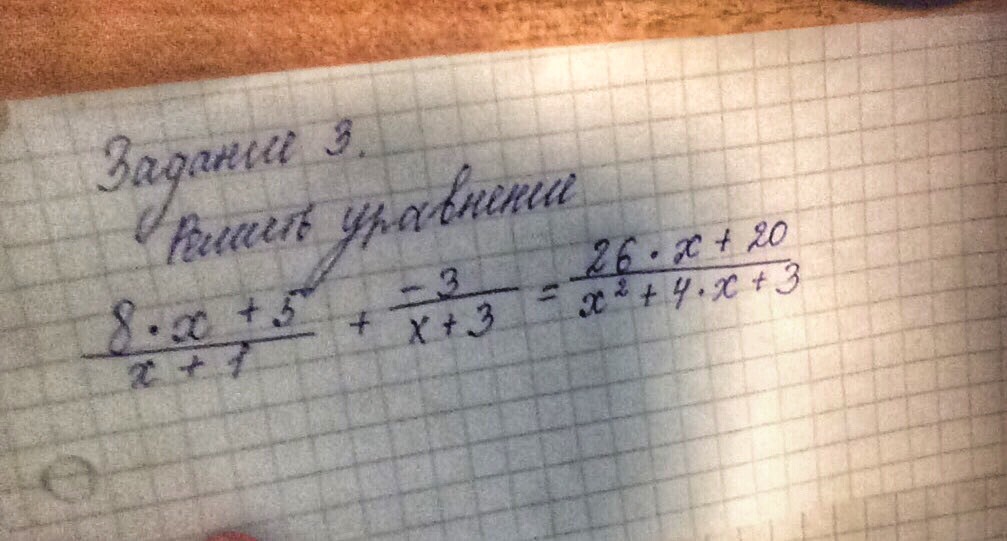 Задание 3.
Решить уравнение
8·x+5/x+1 + -3/x+3 = 26·x+20/x²+4·x+3